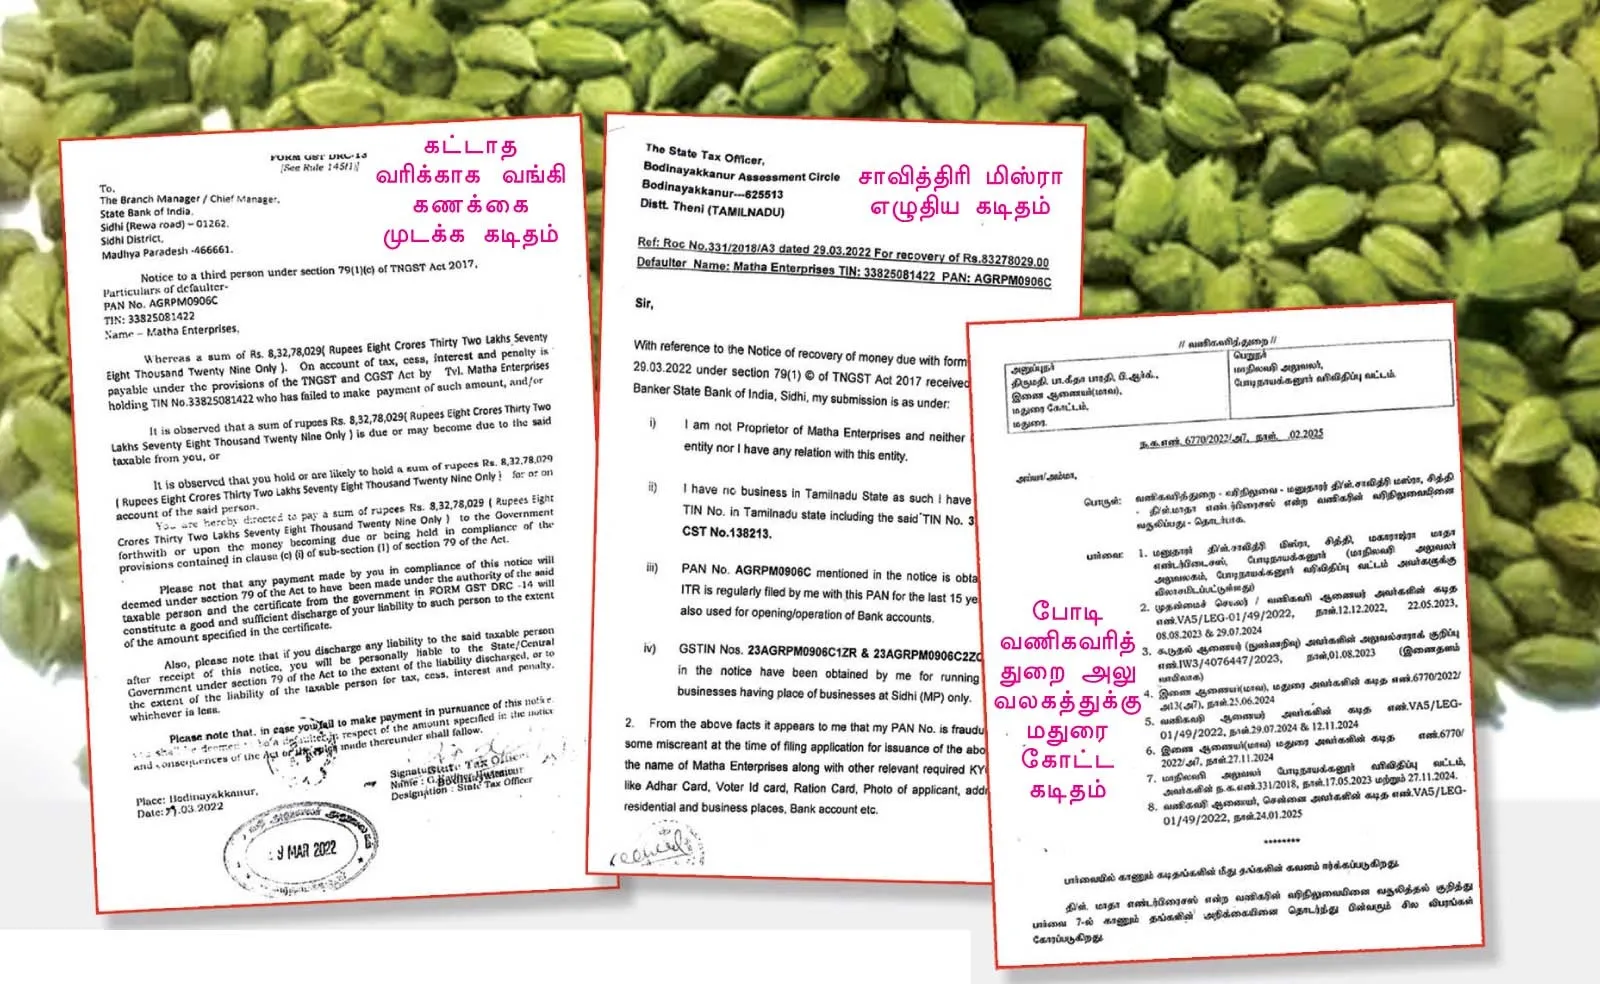 FORM GST DRC-13
[See Rule 145(1)]
கட்டாத
வரிக்காக வங்கி
கணக்கை
முடக்க கடிதம்
To,
The Branch Manager / Chief Manager,
State Bank of India,
Sidhi (Rewa road) – 01262.
Sidhi District,
Madhya Paradesh -466661.
Notice to a third person under section 79(1)(c) of TNGST Act 2017,
Particulars of defaulter-
PAN No. AGRPM0906C
TIN: 33825081422
Name – Matha Enterprises,
Whereas a sum of Rs. 8,32,78,029( Rupees Eight Crores Thirty Two Lakhs Seventy
Eight Thousand Twenty Nine Only ). On account of tax, cess, interest and penalty is
payable under the provisions of the TNGST and CGST Act by Tvl. Matha Enterprises
holding TIN No.33825081422 who has failed to make payment of such amount, and/or
It is observed that a sum of rupees Rs. 8,32,78,029( Rupees Eight Crores Thirty Two
Lakhs Seventy Eight Thousand Twenty Nine Only ) is due or may become due to the said
taxable from you, or
It is observed that you hold or are likely to hold a sum of rupees Rs. 8,32,78,029
( Rupees Eight Crores Thirty Two Lakhs Seventy Eight Thousand Twenty Nine Only ) for or on
account of the said person.
You are hereby directed to pay a sum of rupees Rs. 8,32,78,029 ( Rupees Eight
Crores Thirty Two Lakhs Seventy Eight Thousand Twenty Nine Only ) to the Government
forthwith or upon the money becoming due or being held in compliance of the
provisions contained in clause (c) (i) of sub-section (1) of section 79 of the Act.
Please not that any payment made by you in compliance of this notice will
deemed under section 79 of the Act to have been made under the authority of the said
taxable person and the certificate from the government in FORM GST DRC -14 will
constitute a good and sufficient discharge of your liability to such person to the extent
of the amount specified in the certificate.
Also, please note that if you discharge any liability to the said taxable person
after receipt of this notice, you will be personally liable to the State/Central
Government under section 79 of the Act to the extent of the liability discharged, or to
the extent of the liability of the taxable person for tax, cess, interest and penalty,
whichever is less.
Please note that, in case you fail to make payment in pursuance of this notice,
you shall be deemed to be a defaulter in respect of the amount specified in the notice
and consequences of the Act or the rules made thereunder shall follow.
Signature
State Tax Officer
Name :
Bodinayakkanur
Designation : State Tax Officer
Place: Bodinayakkanur,
Date: .03.2022
MAR 2022
The State Tax Officer,
Bodinayakkanur Assessment Circle
Bodinayakkanur---625513
Distt. Theni (TAMILNADU)
சாவித்திரி மிஸ்ரா
எழுதிய கடிதம்
Ref: Roc No.331/2018/A3 dated 29.03.2022 For recovery of Rs.83278029.00
Defaulter Name: Matha Enterprises TIN: 33825081422 PAN: AGRPM0906C
Sir,
With reference to the Notice of recovery of money due with form
29.03.2022 under section 79(1) © of TNGST Act 2017 received
Banker State Bank of India, Sidhi, my submission is as under:
i) I am not Proprietor of Matha Enterprises and neither
entity nor I have any relation with this entity.
ii) I have no business in Tamilnadu State as such I have
TIN No. in Tamilnadu state including the said TIN No. 3
CST No.138213.
iii) PAN No. AGRPM0906C mentioned in the notice is obta
ITR is regularly filed by me with this PAN for the last 15 ye
also used for opening/operation of Bank accounts.
iv) GSTIN Nos. 23AGRPM0906C1ZR & 23AGRPM0906C2ZQ
in the notice have been obtained by me for running
businesses having place of businesses at Sidhi (MP) only.
2. From the above facts it appears to me that my PAN No. is fraudu
some miscreant at the time of filing application for issuance of the abo
the name of Matha Enterprises along with other relevant required KY
like Adhar Card, Voter Id card, Ration Card, Photo of applicant, addr
residential and business places, Bank account etc.
received
// வணிகவரித்துறை //
அனுப்புநர்
திருமதி. பா.கீதா பாரதி, பி.ஆர்க்.,
இணை ஆணையர்(மாவ),
மதுரை கோட்டம்,
மதுரை.
பெறுநர்
மாநிலவரி அலுவலர்,
போடிநாயக்கனூர் வரிவிதிப்பு வட்டம்.
ந.க.எண். 6770/2022/அ7, நாள். .02.2025
அய்யா/அம்மா,
பொருள்: வணிகவரித்துறை - வரிநிலுவை - மனுதாரர் தி/ள்.சாவித்ரி மிஸ்ரா, சித்தி
- தி/ள்.மாதா எண்டர்பிரைசஸ் என்ற வணிகரின் வரிநிலுவையினை
வசூலிப்பது - தொடர்பாக.
பார்வை: 1. மனுதாரர் தி/ள்.சாவித்ரி மிஸ்ரா, சித்தி, மகாராஷ்ரா மாதா
எண்டர்பிரைசஸ், போடிநாயக்கனூர் (மாநிலவரி அலுவலர்
அலுவலகம், போடிநாயக்கனூர் வரிவிதிப்பு வட்டம் அவர்களுக்கு
விலாசமிடப்பட்டுள்ளது)
2. முதன்மைச் செயலர் / வணிகவரி ஆணையர் அவர்களின் கடித
எண்.VA5/LEG-01/49/2022, நாள்.12.12.2022, 22.05.2023,
08.08.2023 & 29.07.2024
3. கூடுதல் ஆணையர் (நுண்ணறிவு) அவர்களின் அலுவல்சாராக் குறிப்பு
எண்.IW3/4076447/2023, நாள்.01.08.2023 (இணைதளம்
வாயிலாக)
4. இணை ஆணையர்(மாவ), மதுரை அவர்களின் கடித எண்.6770/2022/
அ13(அ7), நாள்.25.06.2024
5. வணிகவரி ஆணையர் அவர்களின் கடித எண்.VA5/LEG-
01/49/2022, நாள்.29.07.2024 & 12.11.2024
6. இணை ஆணையர்(மாவ) மதுரை அவர்களின் கடித எண். 6770/
2022/அ7, நாள்.27.11.2024
7. மாநிலவரி அலுவலர் போடிநாயக்கனூர் வரிவிதிப்பு வட்டம்,
அவர்களின் ந.க.எண்.331/2018, நாள்.17.05.2023 மற்றும் 27.11.2024.
8. வணிகவரி ஆணையர், சென்னை அவர்களின் கடித எண்.VA5/LEG-
01/49/2022, நாள்.24.01.2025
போடி
வணிகவரித்
துறை அலு
வலகத்துக்கு
மதுரை
கோட்ட
கடிதம்
********
பார்வையில் காணும் கடிதங்களின் மீது தங்களின் கவனம் ஈர்க்கப்படுகிறது.
தி/ள். மாதா எண்டர்பிரைசஸ் என்ற வணிகரின் வரிநிலுவையினை வசூலித்தல் குறித்து
பார்வை 7-ல் காணும் தங்களின் அறிக்கையினை தொடர்ந்து பின்வரும் சில விபரங்கள்
கோரப்படுகிறது.